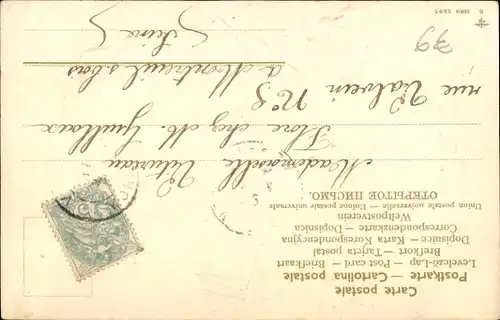 Carte postale
Postkarte — Cartolina postale
Levelező-Lap — Post card — Briefkaart
Brefkort — Tarjeta postal
Dopisnice — Karta Korespondencyjna
Correspondenzkarte — Dopisnica
Weltpostverein
Union postale universelle — Unione postale universale
ОТКРЫТОЕ ПИСЬМО.
Mademoiselle
Flore chez M.
rue N° 8
a Montreuil s. bois
(Seine)
39